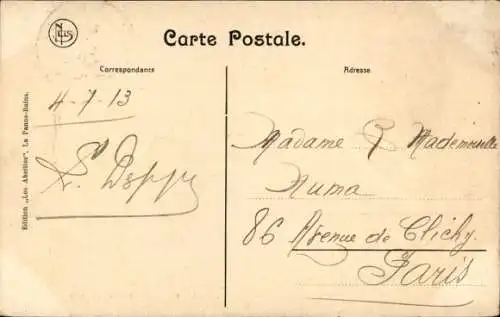 NELS
Carte Postale.
Correspondance
Adresse
4-7-13
Madame & Mademoiselle
Numa
86 Avenue de Clichy
Paris
Edition „Les Abeilles", La Panne-Bains.